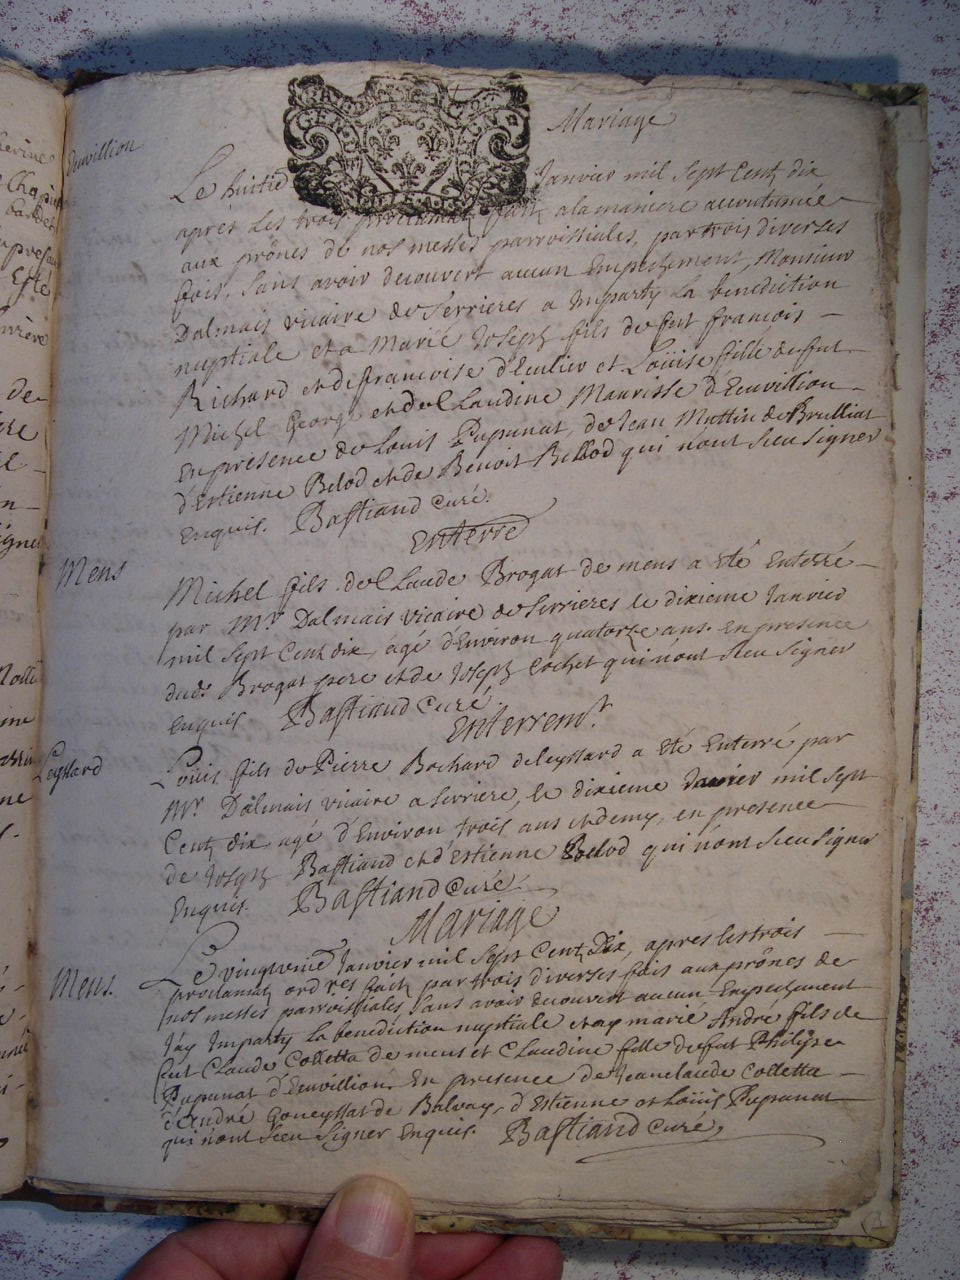 Mariage
Le huitie Janvier mil sept Cent dix
apres les trois proclamat. fait. a la maniere accoutumée
aux prônes de nos messes parroissiales, par trois diverses
fois, sans avoir decouvert aucun Empechement, Monsieur
Dalmais vicaire de Serrieres a Imparty la benediction
nuptiale et a Marié Joseph fils de fut francois
Richard et de francoise d'Eculier et Loüise fille du fut
Michel Georg et de Claudine Maurisse d'Euvillion
En presence de Loüis Pupunat, de Jean Mattin de Brulliat
d'Estienne Belod et de Benoit Bellod qui n'ont sceu signer
Enquis. Bastiand Curé.
Enterré
Mens
Michel fils de Claude Brogat de mens a eté Enterré
par Mr Dalmais vicaire de Serrieres le dixieme Janvier
mil sept Cent dix, agé d'Environ quatorze ans. En presence
dud. Brogat pere et de Joseph Cochet qui n'ont sceu signer
Enquis Bastiand Curé
Enterremt
Leyssard
Loüis fils de Pierre Bochard de leyssard a eté Enterré par
Mr. Dalmais vicaire a Serriere, le dixieme Janvier mil sept
Cent dix, agé d'Environ trois ans et demy, en presence
de Joseph Bastiand et d'Estienne Belod qui n'ont sceu signer
Enquis. Bastiand Curé.
Mariage
Mens.
Le vingtieme Janvier mil sept Cent Dix, apres les trois
proclamat. ord.res fait. par trois diverses fois aux prônes de
nos messes parroissiales, sans avoir decouvert aucun Empechement
J'ay Imparty la benediction nuptiale et ay marié André fils de
fut Claude Colletta de mens et Claudine fille du fut Philippe
Pupunat d'Euvillion. En presence de Jean claude Colletta
d'André Goueyssat de Balvay, d'Estienne et Loüis Pupunat
qui n'ont sceu signer Enquis. Bastiand Curé